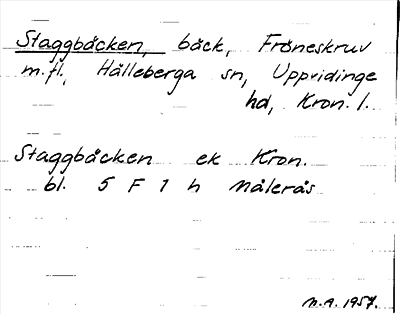 Staggbäcken, bäck, Fröneskruv
m.fl., Hälleberga sn, Uppvidinge
hd, Kron. l.
Staggbäcken ek Kron.
bl. 5 F 1 h Målerås
M.A. 1957.